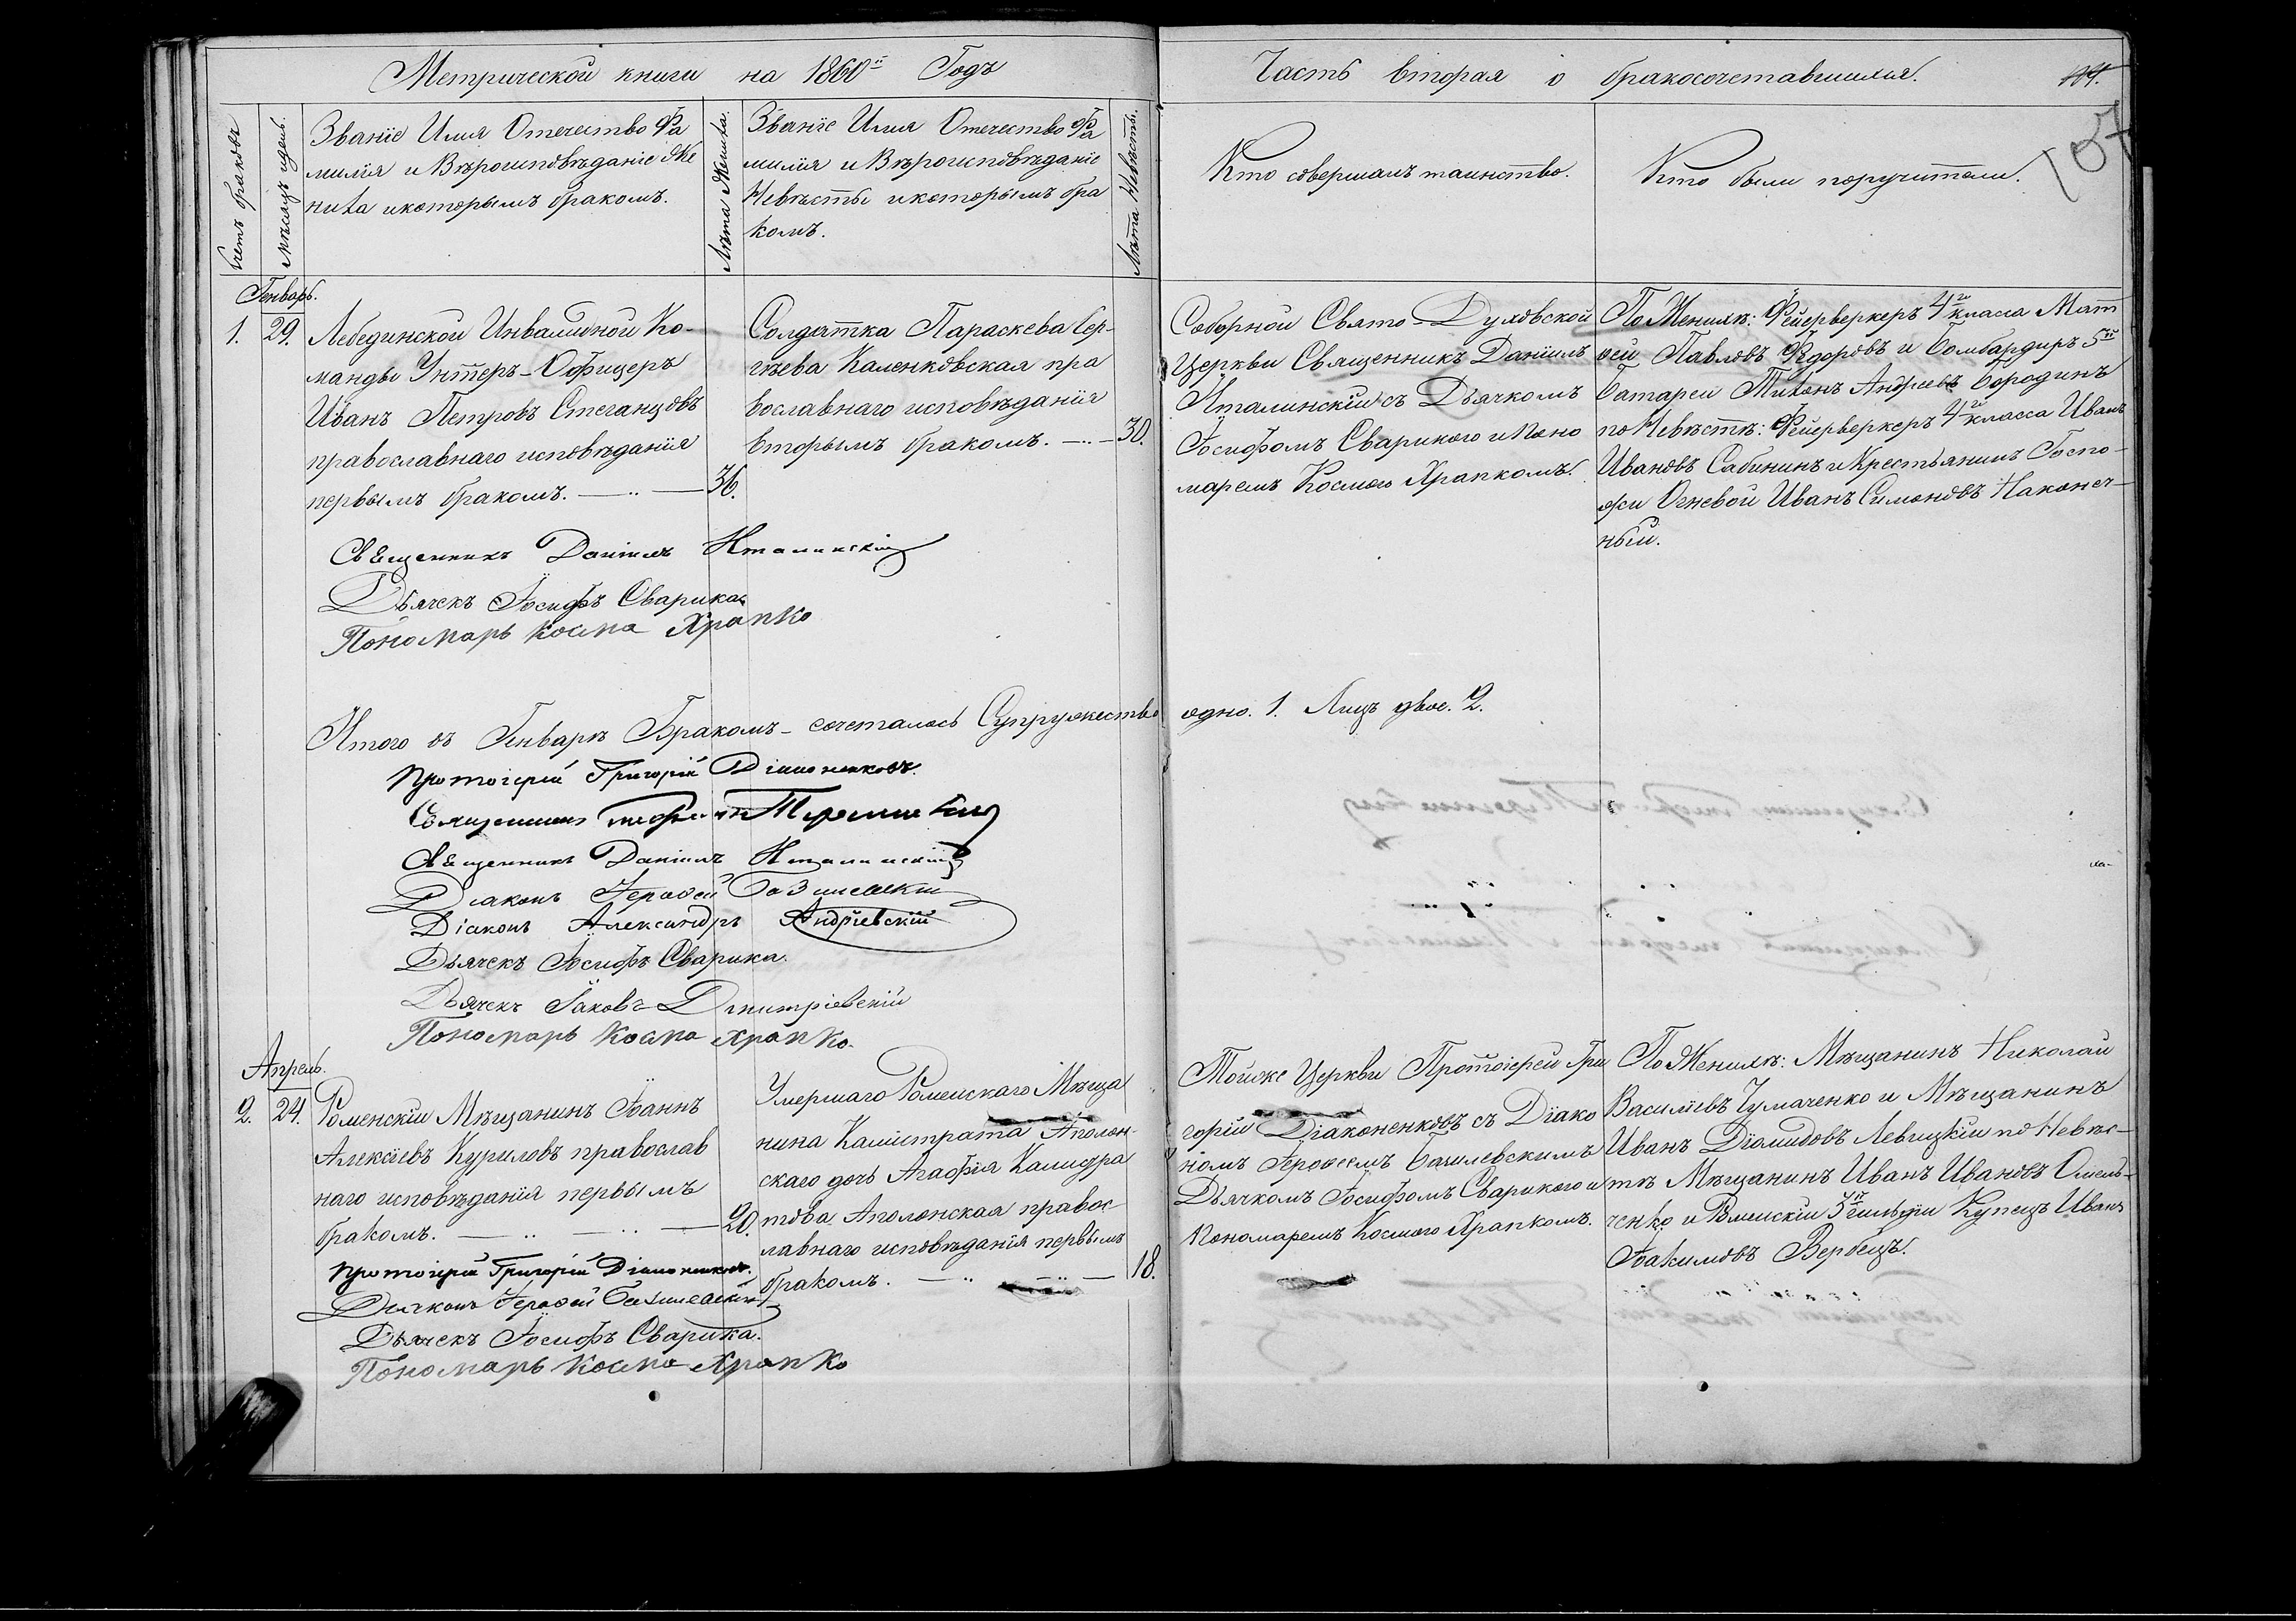 Метрической книги на 1860й Годъ
Часть вторая о бракосочетавшихся.
107
Счетъ браковъ
Мѣсяцъ и день.
Званіе Имя Отечество Фа
милія и Вѣроисповѣданіе Же
ниха и которымъ бракомъ.
Лѣта Жениха.
Званіе Имя Отечество Фа
милія и Вѣроисповѣданіе
Невѣсты и которымъ бра
комъ.
Лѣта Невѣсты.
Кто совершалъ таинство.
Кто были поручители.
Генварь.
1. 29.
Лебединской Инвалидной Ко-
манды Унтеръ-Офицеръ
Иванъ Петровъ Стеганцовъ
православнаго исповѣданія
первымъ бракомъ. 36.
Солдатка Параскева Сер-
гѣева Каленковская пра
вославнаго исповѣданія
вторымъ бракомъ. 30.
Соборной Свято-Духовской
Церкви Священникъ Даніилъ
Италинскій съ Дьячкомъ
Іосифомъ Сварикою и Поно
маремъ Космою Храпкомъ.
По Женихѣ: Фейерверкеръ 4го класса Мат
вей Павловъ Ѳедоровъ и Бомбардиръ 5й
батареи Тихонъ Андреевъ Бородинъ
по Невѣстѣ: Фейерверкеръ 4го класса Иванъ
Ивановъ Сабининъ и Крестьянинъ Госпо-
жи Огневой Иванъ Симоновъ Наконеч-
ный.
Священникъ Даніилъ Италинскій
Дьячекъ Іосифъ Сварика
Пономарь Косма Храпко
Итого въ Генварѣ Бракомъ сочеталось Супружество одно. 1. Лицъ двое. 2.
Протоіерей Григорій Діаконенковъ.
Священникъ
Священникъ Даніилъ Италинскій
Діаконъ Іероѳей Базилевскій
Діаконъ Александръ Андріевскій
Дьячекъ Іосифъ Сварика.
Дьячекъ Іаковъ Дмитріевскій
Пономарь Косма Храпко.
Апрель.
2. 24.
Роменскій Мѣщанинъ Іоаннъ
Алексіевъ Куриловъ православ
наго исповѣданія первымъ
бракомъ. 20.
Умершаго Роменскаго Мѣща
нина Калистрата Аполон-
скаго дочь Агафія Калистра
това Аполонская правос-
лавнаго исповѣданія первымъ
бракомъ. 18.
Тойже Церкви Протоіерей Гри
горій Діаконенковъ съ Діако
номъ Іероѳеемъ Базилевскимъ
Дьячкомъ Іосифомъ Сварикою и
Пономаремъ Космою Храпкомъ.
По Женихѣ: Мѣщанинъ Николай
Василіевъ Чумаченко и Мѣщанинъ
Иванъ Діомидовъ Левицкій по Невѣс-
тѣ Мѣщанинъ Иванъ Ивановъ Омель-
ченко и Роменскій 3й гильдіи Купецъ Иванъ
Іоакимовъ Вербецъ.
Протоіерей Григорій Діаконенковъ.
Діаконъ Іероѳей Базилевскій
Дьячекъ Іосифъ Сварика.
Пономарь Косма Храпко